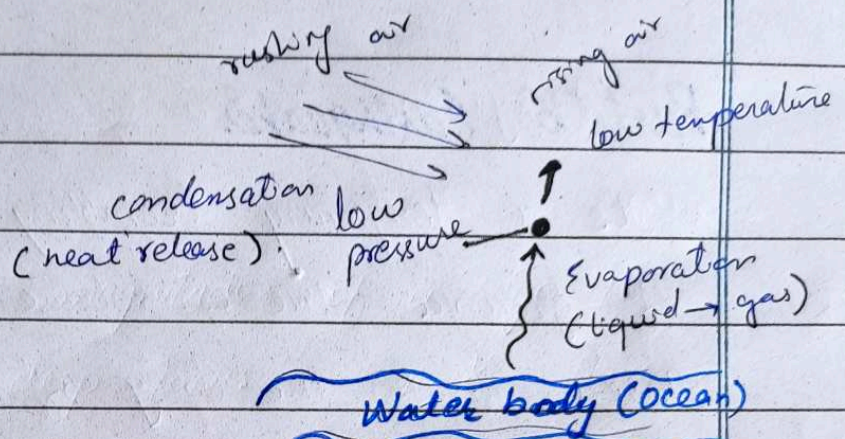 rushing air
rising air
low temperature
condensation
(heat release).
low
pressure
Evaporation
(liquid → gas)
Water body (Ocean)